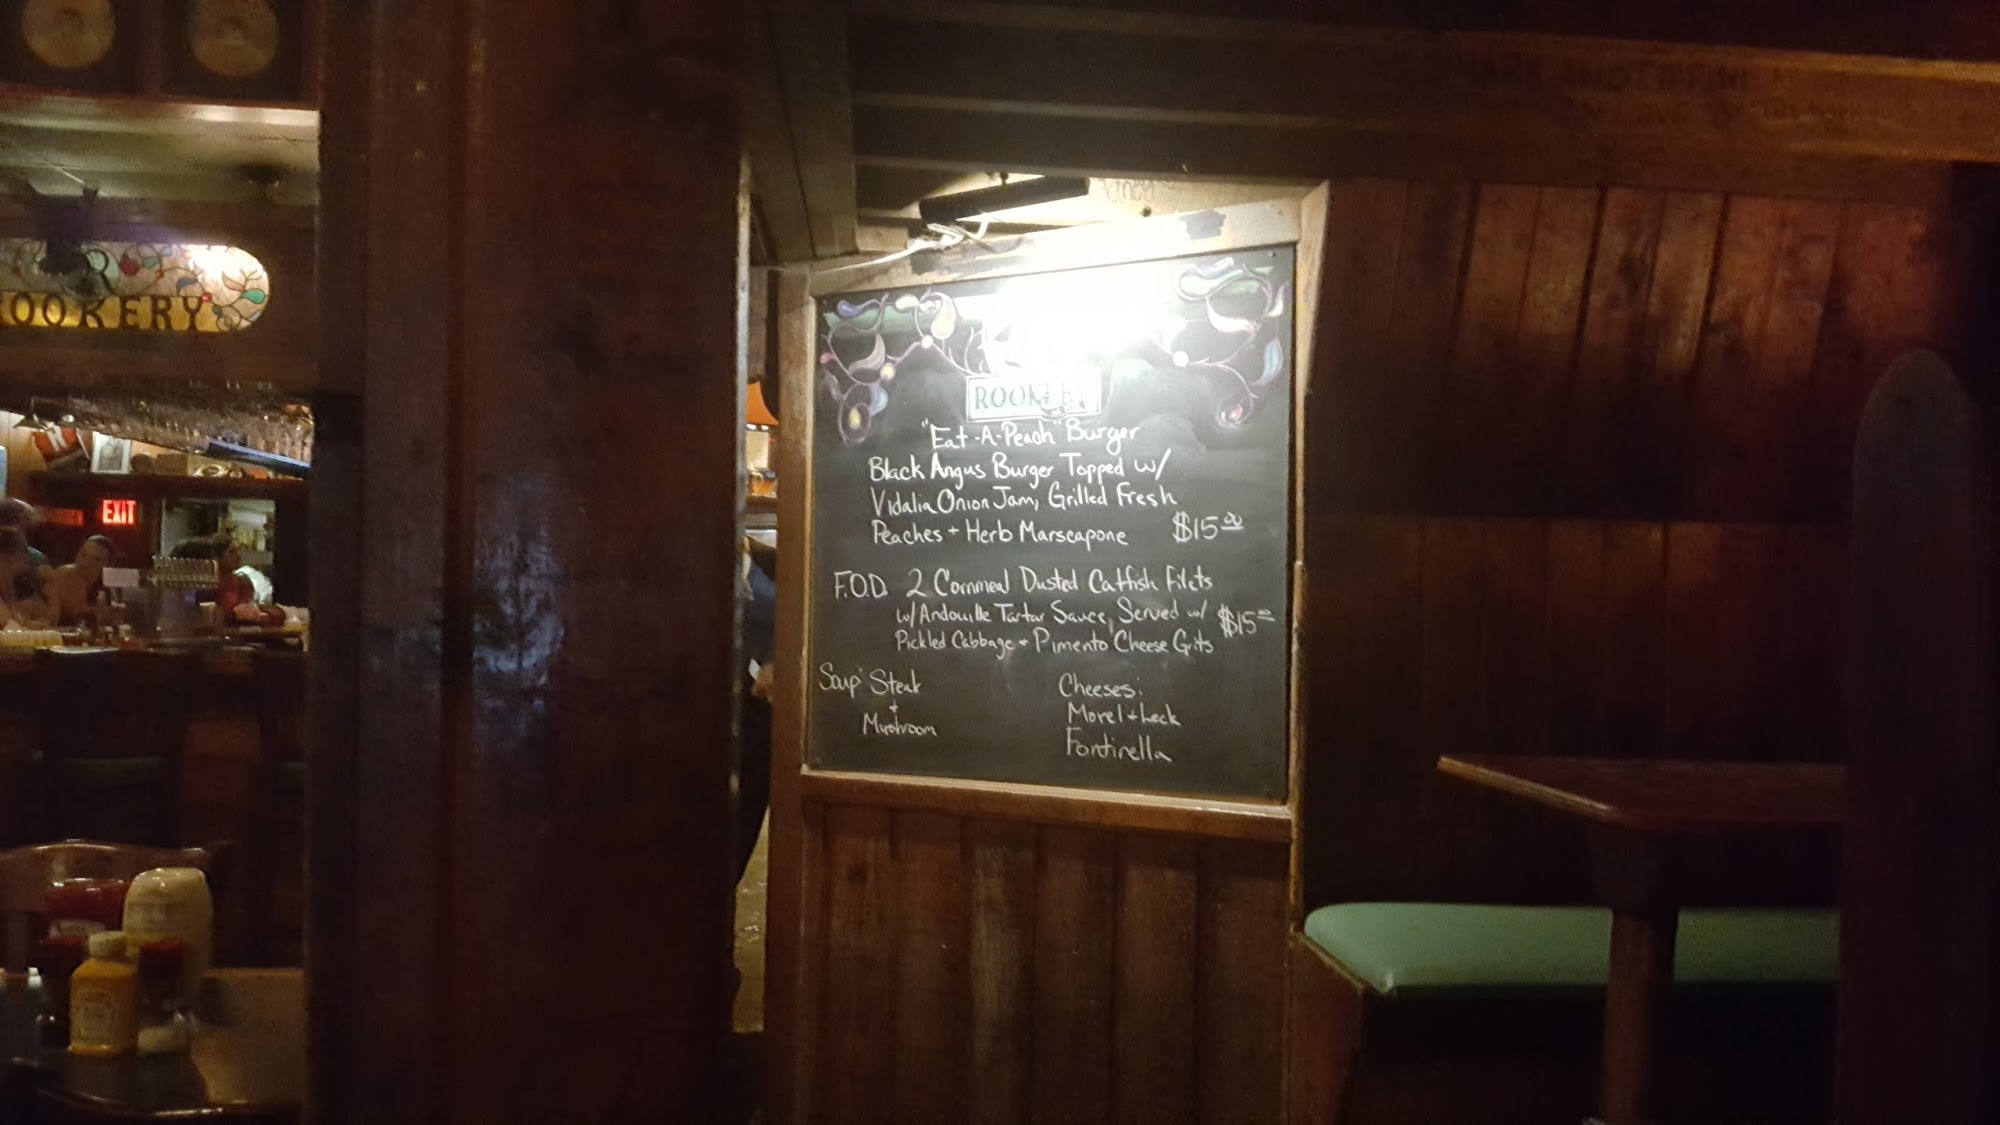 ROOKERY
EXIT
ROOKERY
"Eat-A-Peach" Burger
Black Angus Burger Topped w/
Vidalia Onion Jam, Grilled Fresh
Peaches + Herb Marscapone $15.00
F.O.D. 2 Cornmeal Dusted Catfish Filets
w/ Andouille Tartar Sauce, Served w/ $15.00
Pickled Cabbage + Pimento Cheese Grits
Soup: Steak
+
Mushroom
Cheeses:
Morel + Leek
Fontinella